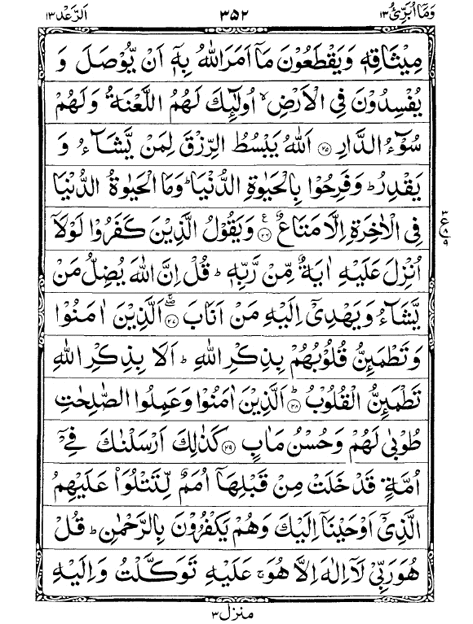 وَمَآ اُبَرِّئُ ١٣ ٣٥٢ اَلرَّعْد ١٣
مِيْثَاقِهٖ وَيَقْطَعُوْنَ مَآ اَمَرَ اللّٰهُ بِهٖٓ اَنْ يُّوْصَلَ وَ
يُفْسِدُوْنَ فِي الْاَرْضِ ۙ اُولٰٓئِكَ لَهُمُ اللَّعْنَةُ وَلَهُمْ
سُوْٓءُ الدَّارِ ۝٢٥ اَللّٰهُ يَبْسُطُ الرِّزْقَ لِمَنْ يَّشَآءُ وَ
يَقْدِرُ ؕ وَفَرِحُوْا بِالْحَيٰوةِ الدُّنْيَا ؕ وَمَا الْحَيٰوةُ الدُّنْيَا
فِي الْاٰخِرَةِ اِلَّا مَتَاعٌ ۝٢٦ وَيَقُوْلُ الَّذِيْنَ كَفَرُوْا لَوْلَاۤ
اُنْزِلَ عَلَيْهِ اٰيَةٌ مِّنْ رَّبِّهٖ ؕ قُلْ اِنَّ اللّٰهَ يُضِلُّ مَنْ
يَّشَآءُ وَيَهْدِيْٓ اِلَيْهِ مَنْ اَنَابَ ۝٢٧ اَلَّذِيْنَ اٰمَنُوْا
وَتَطْمَئِنُّ قُلُوْبُهُمْ بِذِكْرِ اللّٰهِ ؕ اَلَا بِذِكْرِ اللّٰهِ
تَطْمَئِنُّ الْقُلُوْبُ ؕ ۝٢٨ اَلَّذِيْنَ اٰمَنُوْا وَعَمِلُوا الصّٰلِحٰتِ
طُوْبٰى لَهُمْ وَحُسْنُ مَاٰبٍ ۝٢٩ كَذٰلِكَ اَرْسَلْنٰكَ فِيْٓ
اُمَّةٍ قَدْ خَلَتْ مِنْ قَبْلِهَآ اُمَمٌ لِّتَتْلُوَا۟ عَلَيْهِمُ
الَّذِيْٓ اَوْحَيْنَآ اِلَيْكَ وَهُمْ يَكْفُرُوْنَ بِالرَّحْمٰنِ ؕ قُلْ
هُوَ رَبِّيْ لَآ اِلٰهَ اِلَّا هُوَ ۚ عَلَيْهِ تَوَكَّلْتُ وَاِلَيْهِ
منزل ٣